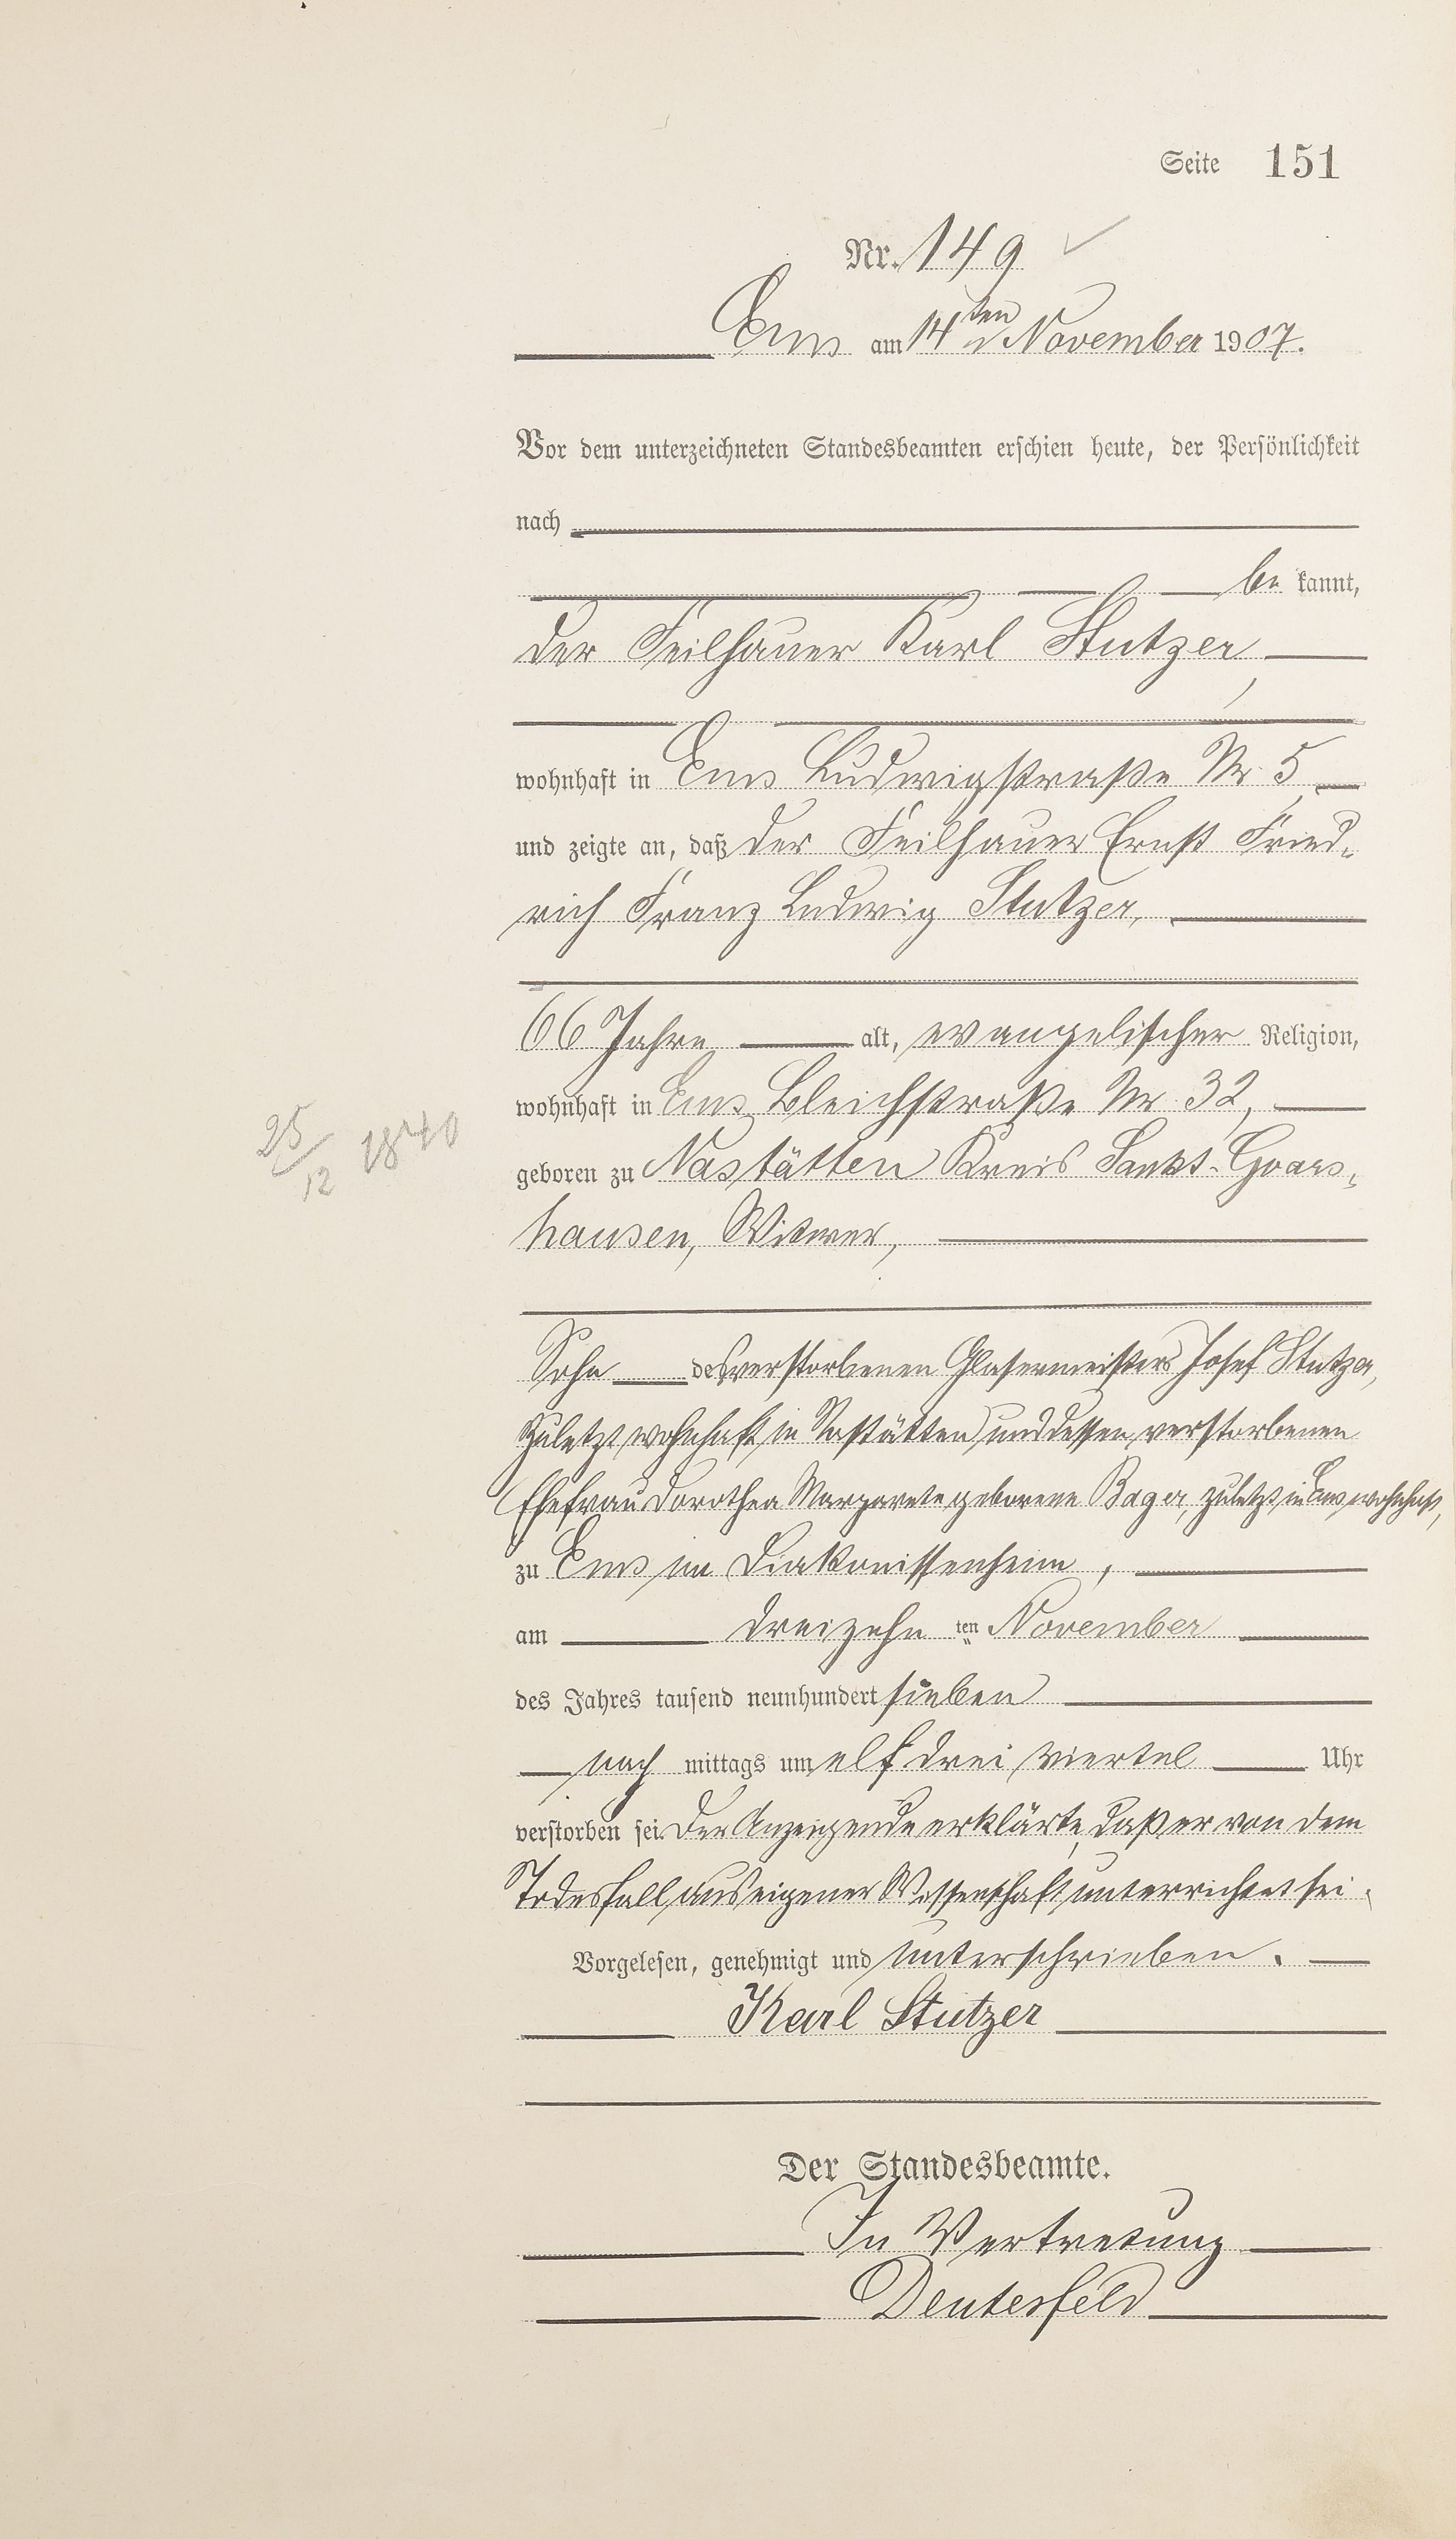 Seite 151
Nr. 149
Ems am 14ten November 1907.
Vor dem unterzeichneten Standesbeamten erschien heute, der Persönlichkeit
nach
be kannt,
der Feilhauer Karl Stutzer,
wohnhaft in Ems Ludwigstraße Nr 5,
und zeigte an, daß der Feilhauer Ernst Fried-
rich Franz Ludwig Stutzer,
66 Jahre alt, evangelischer Religion,
wohnhaft in Ems, Bleichstraße Nr 32,
geboren zu Nastätten Kreis Sankt-Goars-
25/12 1840
hausen, Witwer,
Sohn des verstorbenen Glasermeisters Josef Stutzer,
zuletzt wohnhaft in Nastätten und dessen verstorbenen
Ehefrau Dorothea Margarete geborene Bager, zuletzt in Ems wohnhaft,
zu Ems im Diakonissenheim,
am dreizehn ten November
des Jahres tausend neunhundert sieben
nach mittags um elf drei viertel Uhr
verstorben sei. Der Anzeigende erklärte, daß er von dem
Todesfall aus eigener Wissenschaft unterrichtet sei.
Vorgelesen, genehmigt und unterschrieben.
Karl Stutzer
Der Standesbeamte.
In Vertretung
Deutesfeld